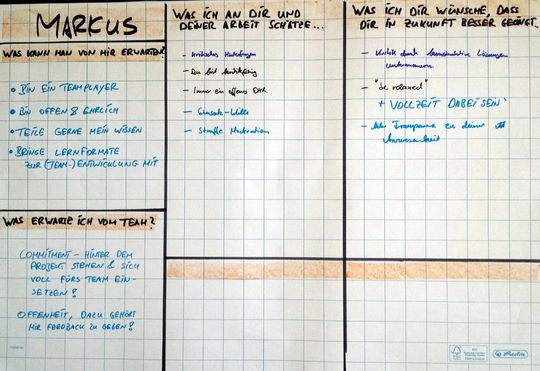 MARKUS
WAS KANN MAN VON MIR ERWARTEN?
• BIN EIN TEAMPLAYER
• BIN OFFEN & EHRLICH
• TEILE GERNE MEIN WISSEN
• BRINGE LERNFORMATE
ZUR (TEAM-) ENTWICKLUNG MIT
WAS ERWARTE ICH VOM TEAM?
COMMITMENT – HINTER DEM
PROJEKT STEHEN & SICH
VOLL FÜRS TEAM EIN-
SETZEN!
OFFENHEIT, DAZU GEHÖRT
MIR FEEDBACK ZU GEBEN!
WAS ICH AN DIR UND
DEINER ARBEIT SCHÄTZE...
– Kritisches Hinterfragen
– Du bist kritikfähig
– Immer ein offenes Ohr
– Einsatz-Wille
– Straffe Moderation
WAS ICH DIR WÜNSCHE, DASS
DIR IN ZUKUNFT BESSER GELINGT...
– Kritik durch konstruktive Lösungen
– "be relaxed"
+ VOLLZEIT DABEI SEIN
– Transparenz zu deiner
FSC
Herlitz